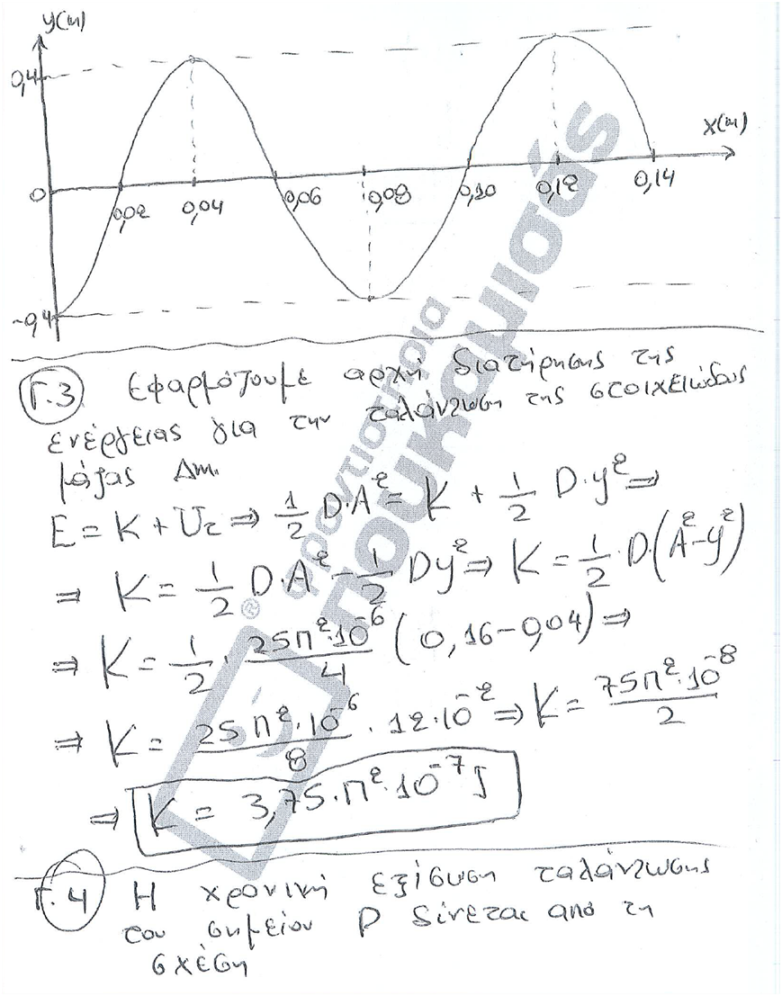 y(m)
0,4
x(m)
0
0,02 0,04 0,06 0,08 0,10 0,12 0,14
-0,4
Γ.3 Εφαρμόζουμε αρχή διατήρησης της
ενέργειας για την ταλάντωση της στοιχειώδους
μάζας Δm.
E = K + Uτ ⇒ 1/2 D·A² = K + 1/2 D·y² ⇒
⇒ K = 1/2 D·A² - 1/2 Dy² ⇒ K = 1/2·D(A²-y²)
⇒ K = 1/2 · 25π²·10⁻⁶/4 (0,16-0,04) ⇒
⇒ K = 25π²·10⁻⁶/8 · 12·10⁻² ⇒ K = 75π²·10⁻⁸/2
⇒ K = 3,75·π²·10⁻⁷ J
Γ.4 Η χρονική εξίσωση ταλάντωσης
του σημείου Ρ δίνεται από τη
σχέση
φροντιστήρια
πουκαμισάς
®